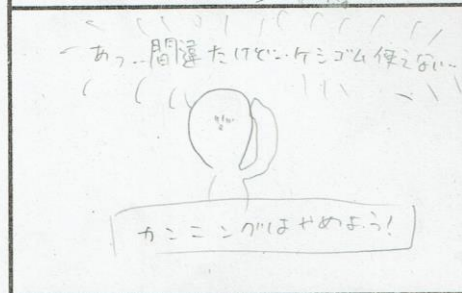 あっ…間違たけど…ケシゴム使えない…
カンニングはやめよう!